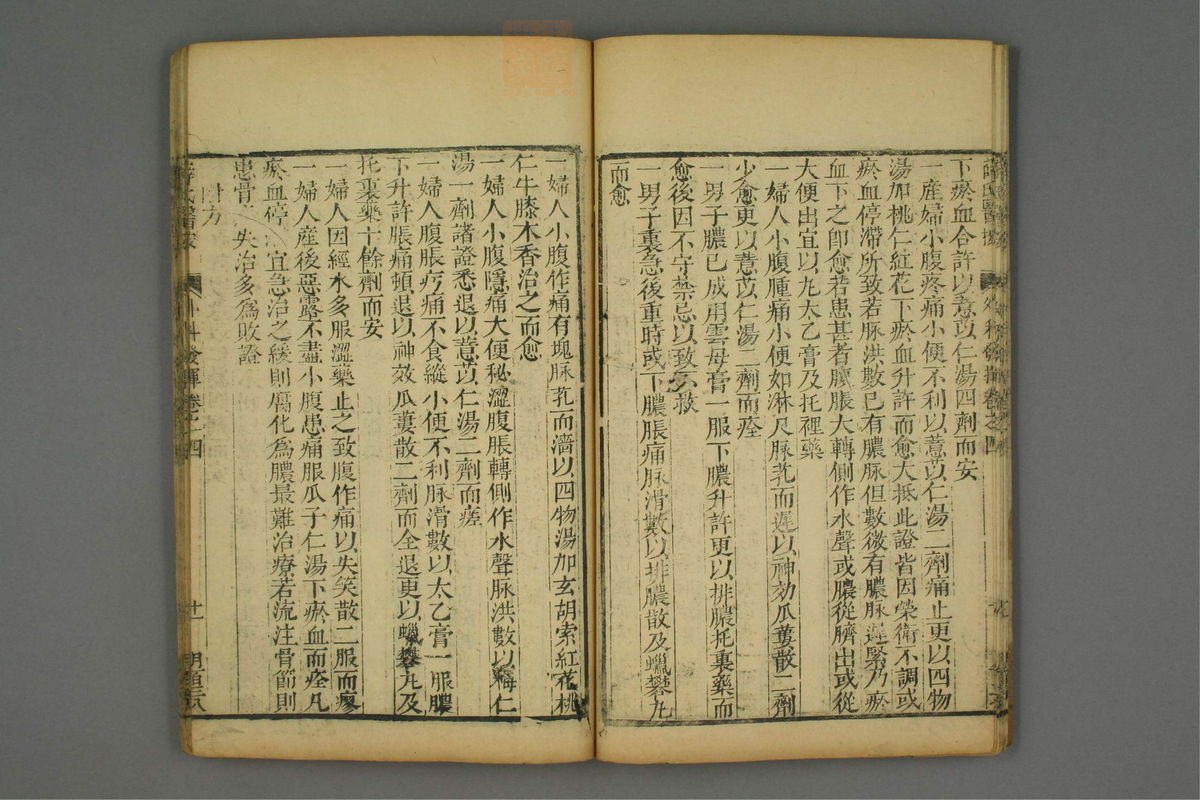 下瘀血合許以薏苡仁湯四劑而安
一産婦小腹疼痛小便不利以薏苡仁湯二劑痛止更以四物
湯加桃仁紅花下瘀血升許而愈大抵此證皆因榮衛不調或
瘀血停滯所致若脉洪數已有膿脉但數微有膿脉遲緊乃瘀
血下之卽愈若患甚者腹脹大轉側作水聲或膿從臍出或從
大便出宜以太乙膏及托裡藥
一婦人小腹腫痛小便如淋尺脉芤而遲以神効瓜蔞散二劑
少愈更以薏苡仁湯二劑而痊
一男子膿已成用雲母膏一服下膿升許更以排膿托裏藥而
愈後因不守禁忌以致不救
一男子裏急後重時或下膿脹痛脉滑數以排膿散及蠟礬丸
而愈
一婦人小腹作痛有塊脉芤而濇以四物湯加玄胡索紅花桃
仁牛膝木香治之而愈
一婦人小腹隱痛大便秘澀腹脹轉側作水聲脉洪數以梅仁
湯一劑諸證悉退以薏苡仁湯二劑而瘥
一婦人腹脹痛不食縱小便不利脉滑數以太乙膏一服膿
下升許脹痛頓退以神效瓜蔞散二劑而全退更以蠟礬丸及
托裏藥十餘劑而安
一婦人因經水多服澀藥止之致腹作痛以失笑散二服而瘳
一婦人産後惡露不盡小腹患痛服瓜子仁湯下瘀血而痊凡
瘀血停宜急治之緩則腐化爲膿最難治療若流注骨節則
患骨失治多爲敗證
附方
薛氏醫案 外科發揮卷之四 十一